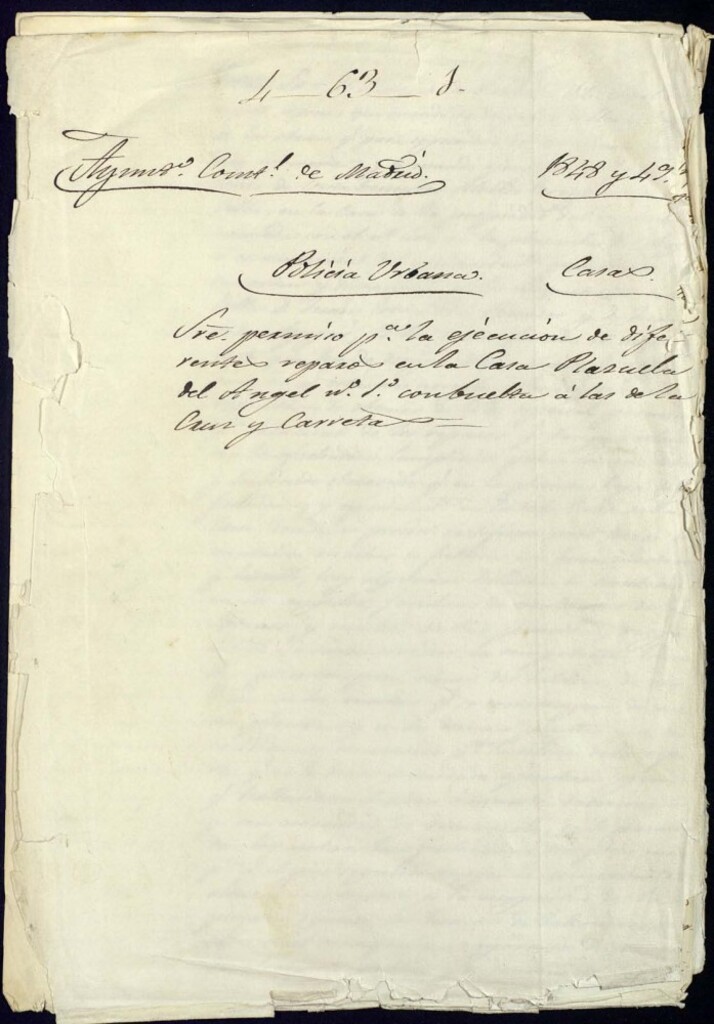 4 — 63 — 1.
Ayuntº. Constl. de Madrid.
1848 y 49.
Policía Urbana.
Casas.
Sre. permiso pª. la ejecucion de dife-
rentes reparos en la Casa Plazuela
del Angel nº. 1º. con buelta á las de la
Cruz y Carretas